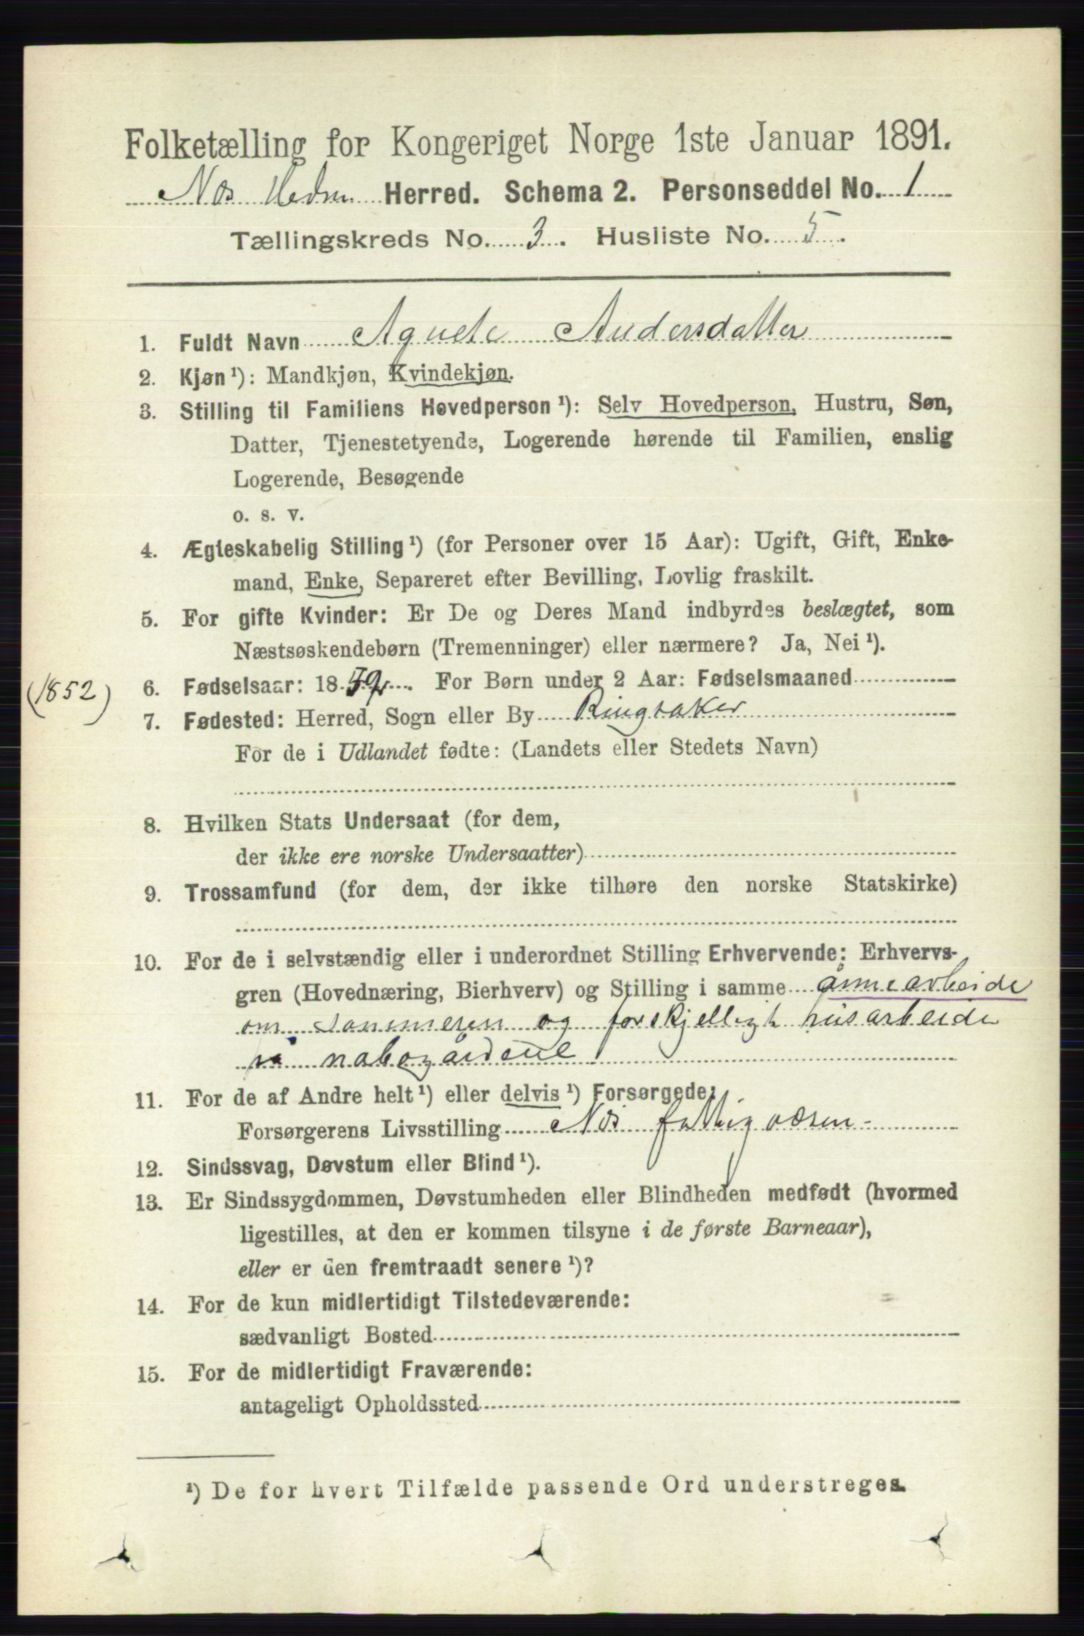 Folketælling for Kongeriget Norge 1ste Januar 1891.
Nes Hedm Herred. Schema 2. Personseddel No. 1
Tællingskreds No. 3. Husliste No. 5.
1. Fuldt Navn Agnete Andersdatter
2. Kjøn ¹): Mandkjøn, Kvindekjøn.
3. Stilling til Familiens Hovedperson ¹): Selv Hovedperson, Hustru, Søn,
Datter, Tjenestetyende, Logerende hørende til Familien, enslig
Logerende, Besøgende
o. s. v.
4. Ægteskabelig Stilling ¹) (for Personer over 15 Aar): Ugift, Gift, Enke-
mand, Enke, Separeret efter Bevilling, Lovlig fraskilt.
5. For gifte Kvinder: Er De og Deres Mand indbyrdes beslægtet, som
Næstsøskendebørn (Tremenninger) eller nærmere? Ja, Nei ¹).
(1852) 6. Fødselsaar: 18 . For Børn under 2 Aar: Fødselsmaaned
7. Fødested: Herred, Sogn eller By Ringsaker
For de i Udlandet fødte: (Landets eller Stedets Navn)
8. Hvilken Stats Undersaat (for dem,
der ikke ere norske Undersaatter)
9. Trossamfund (for dem, der ikke tilhøre den norske Statskirke)
10. For de i selvstændig eller i underordnet Stilling Erhvervende: Erhvervs-
gren (Hovednæring, Bierhverv) og Stilling i samme ånnearbeide
om sommeren og forskjelligt husarbeide
på nabogårdene
11. For de af Andre helt ¹) eller delvis ¹) Forsørgede:
Forsørgerens Livsstilling Nes fattigvæsen
12. Sindssvag, Døvstum eller Blind ¹).
13. Er Sindssygdommen, Døvstumheden eller Blindheden medfødt (hvormed
ligestilles, at den er kommen tilsyne i de første Barneaar),
eller er den fremtraadt senere ¹)?
14. For de kun midlertidigt Tilstedeværende:
sædvanligt Bosted
15. For de midlertidigt Fraværende:
antageligt Opholdssted
¹) De for hvert Tilfælde passende Ord understreges.